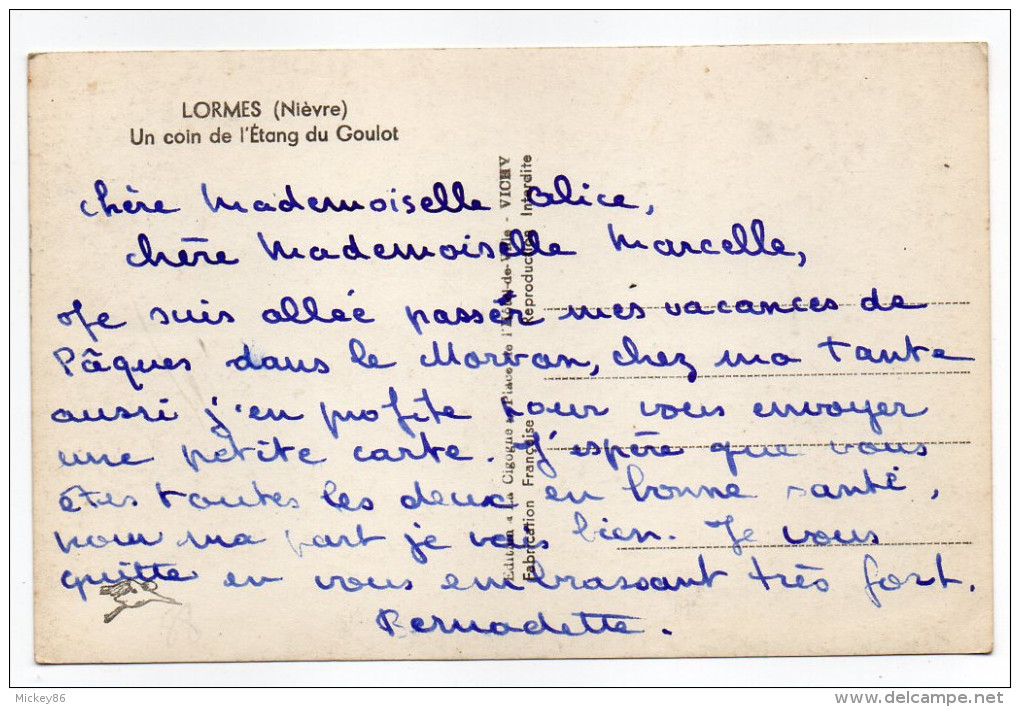 LORMES (Nièvre)
Un coin de l'Étang du Goulot
chère Mademoiselle Alice,
chère Mademoiselle Marcelle,
Je suis allée passer mes vacances de
Pâques dans le Morvan, chez ma tante
aussi j'en profite pour vous envoyer
une petite carte. J'espère que vous
êtes toutes les deux en bonne santé,
pour ma part je vais bien. Je vous
quitte en vous embrassant très fort.
Bernadette.
Edition " La Cigogne " Place de l'Hôtel-de-Ville - VICHY
Fabrication Française Reproduction Interdite
Mickey86
www.delcampe.net